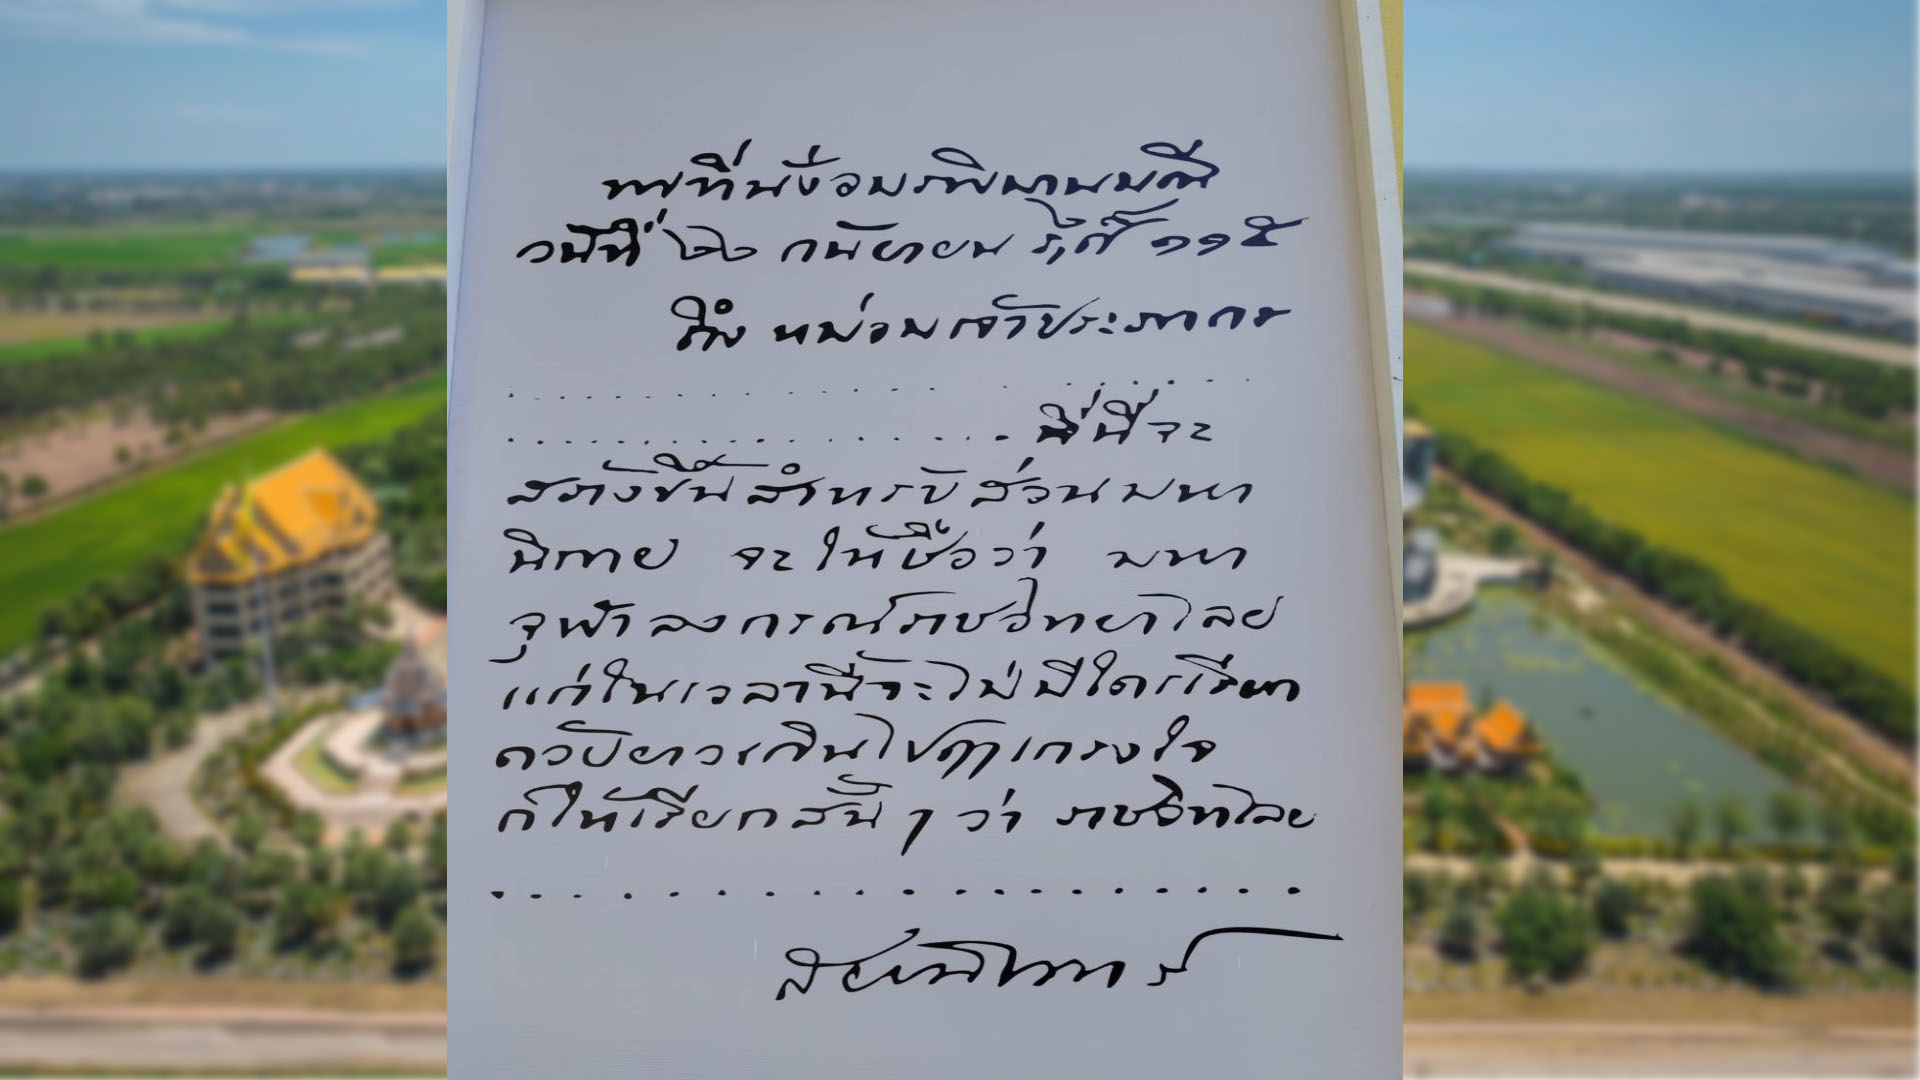 พระที่นั่งอมรพิมานมณี
วันที่ ๖ กันยายน ร,ศ ๑๑๕
ถึง หม่อมเจ้าประภากร
ที่นี่จะ
สร้างขึ้นสำหรับส่วนมหา
นิกาย จะให้ชื่อว่า มหา
จุฬาลงกรณ์ราชวิทยาไลย
แต่ในเวลานี้จะไม่มีใครเรียก
ด้วยยาวเกินไปฤๅเกรงใจ
ก็ให้เรียกสั้น ๆ ว่า ราชวิทไลย
สยามินทร์